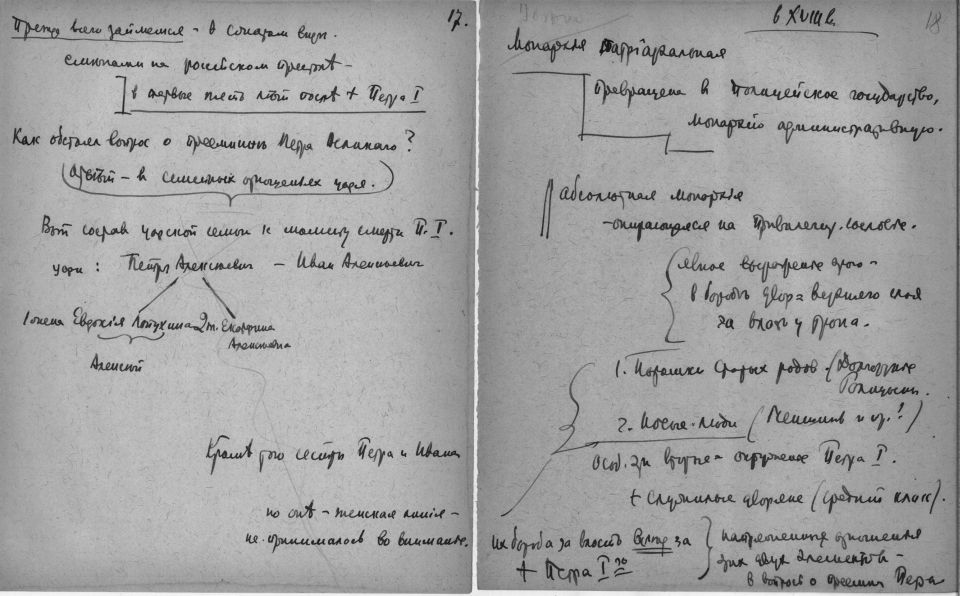 17.
Прежде всего займемся – в
смыслами на российском престолѣ –
в первые пять лѣт послѣ + Петра I
Как обстоял вопрос о преемниках Петра Великаго?
Отвѣт – в семейных отношениях царя.
Вот состав царской семьи к моменту смерти П. I.
цари: Петръ Алексѣевич – Иван Алексѣевич
1 жена Евдокія Лопухина 2 ж. Екатерина
Алексѣевна
Алексѣй
Кромѣ того сестры Петра и Ивана
но онѣ – женская линія –
не принималось во внимание.
18
в XVIII в.
Монархія патріархальная
превращена в полицейское государство,
монархію административную.
Абсолютная монархія
– опирающаяся на привилегир. сословіе.
явное выражение этого –
в борьбѣ двор = верхнего слоя
за власть у трона.
1. Потомки старых родов (Долгорукие
Голицыны.
2. Новые люди (Меншик. и др.!)
Особ. эти вторые = окружение Петра I.
+ служилые дворяне (средний класс).
Их борьба за власть вслѣд за
+ Петра I го
напряженные отношения
этих двух элементов –
в вопросѣ о преемник Петра